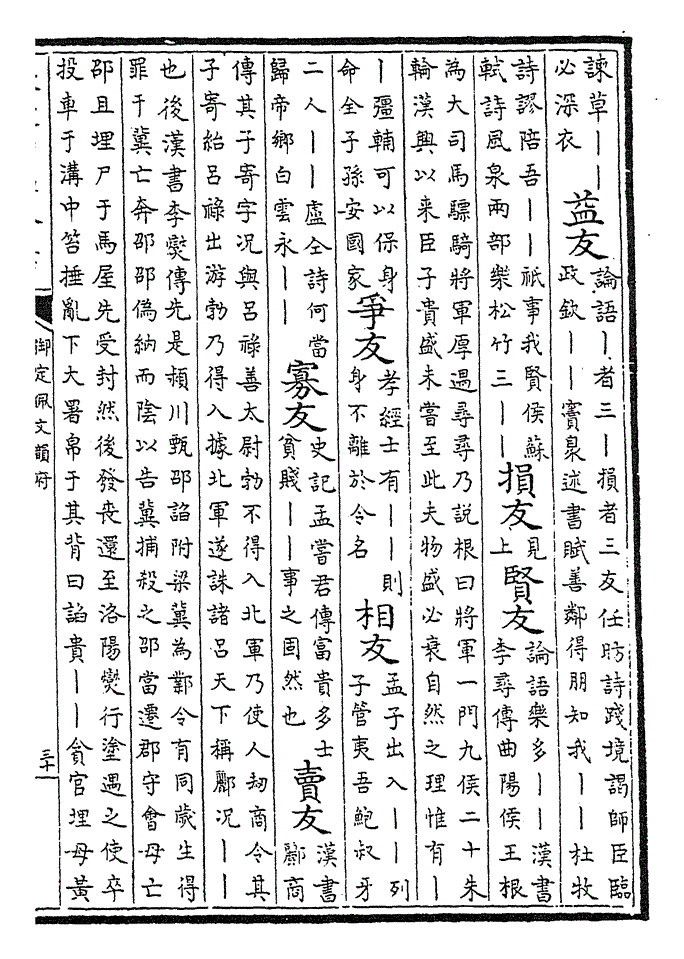 諫草丨丨
必深衣
益友
論語丨者三丨損者三友任昉詩踐境謁師臣臨
政欽丨丨竇臮述書賦善鄰得朋知我丨丨杜牧
詩謬陪吾丨丨祇事我賢侯蘇
軾詩風泉兩部樂松竹三丨丨
損友
見
上
賢友
論語樂多丨丨漢書
李尋傳曲陽侯王根
為大司馬驃騎將軍厚遇尋尋乃說根曰將軍一門九侯二十朱
輪漢興以来臣子貴盛未嘗至此夫物盛必衰自然之理惟有丨
丨彊輔可以保身
命全子孫安國家
爭友
孝經士有丨丨則
身不離於令名
相友
孟子出入丨丨列
子管夷吾鮑叔牙
二人丨丨盧仝詩何當
歸帝鄉白雲永丨丨
寡友
史記孟嘗君傳富貴多士
貧賤丨丨事之固然也
賣友
漢書
酈商
傳其子寄字况與呂祿善太尉勃不得入北軍乃使人刼商令其
子寄紿呂祿出游勃乃得入據北軍遂誅諸呂天下稱酈况丨丨
也後漢書李爕傳先是頴川甄邵諂附梁冀為鄴令有同歲生得
罪于冀亡奔邵邵偽納而陰以告冀捕殺之邵當遷郡守會母亡
邵且埋尸于馬屋先受封然後發喪還至洛陽爕行塗遇之使卒
投車于溝中笞捶亂下大署帛于其背曰諂貴丨丨貪官埋母黃
御定佩文韻府
三十一